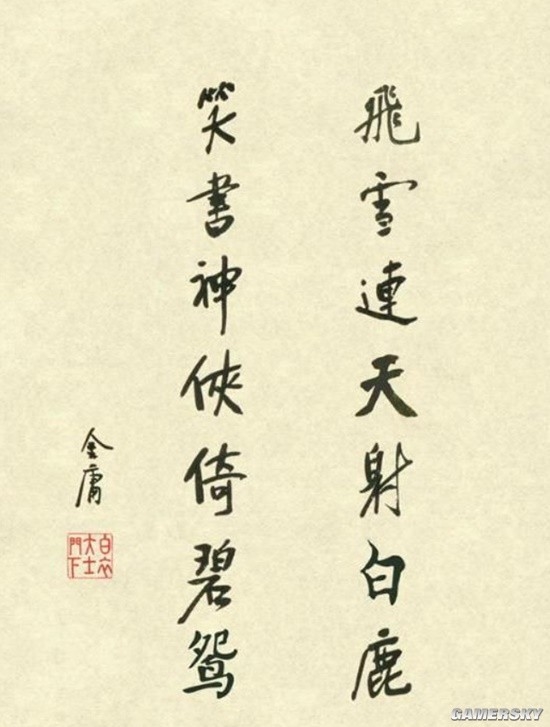 飛雪連天射白鹿
笑書神俠倚碧鸳
金庸
白衣大士門下
GAMERSKY